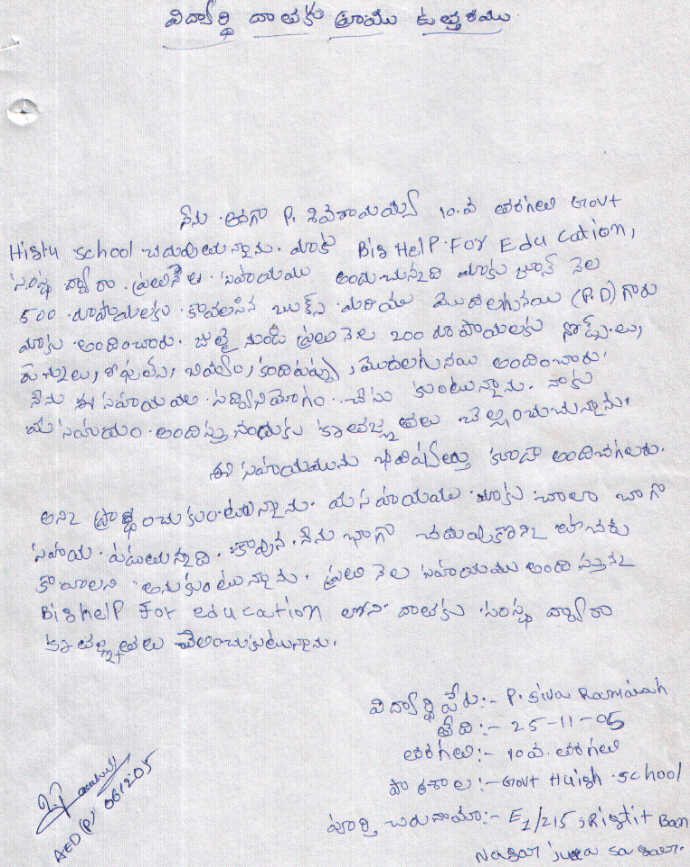 విద్యార్థి దాతకు వ్రాయు ఉత్తరము
నేను అనగా P. శివరామయ్య 10.వ తరగతి Govt
Highu school చదువుతున్నాను. మాకు Big HelP For Education,
సంస్థ ద్వారా ప్రతినెల సహాయము అందుచున్నది మాకు జూన్ నెల
500 రూపాయలకు కావలసిన బుక్స్ మరియు మొదలగునవి (P.D) గారు
మాకు అందించారు. జులై నుండి ప్రతి నెల 200 రూపాయలకు నోట్సులు,
పెన్నులు, బియ్యం, కందిపప్పు, మొదలగునవి అందించారు.
నేను ఈ సహాయమును సద్వినియోగం చేసుకుంటున్నాను. నాకు
ఈ సహాయం అందిస్తున్నందుకు కృతజ్ఞతలు చెల్లించుచున్నాను.
ఈ సహాయమును భవిష్యత్తు కూడా అందించగలరు.
అని ప్రార్థించుకుంటున్నాను. ఈ సహాయము మాకు చాలా బాగా
సహాయ పడుతున్నది. కావున, నేను బాగా చదువుకొని
కావాలని అనుకుంటున్నాను. ప్రతి నెల సహాయము అందిస్తున్న
Big helP For education లోని దాతకు సంస్థ ద్వారా
కృతజ్ఞతలు చెలించుకుటున్నాను.
విద్యార్థి పేరు:- P. Siva Ramaiah
తేది:- 25-11-05
తరగతి:- 10వ. తరగతి
పాఠశాల:- Govt Huigh school
పూర్తి చిరునామా:- E1/215, Rigtit Ban
Nagar
AED (P) 061205